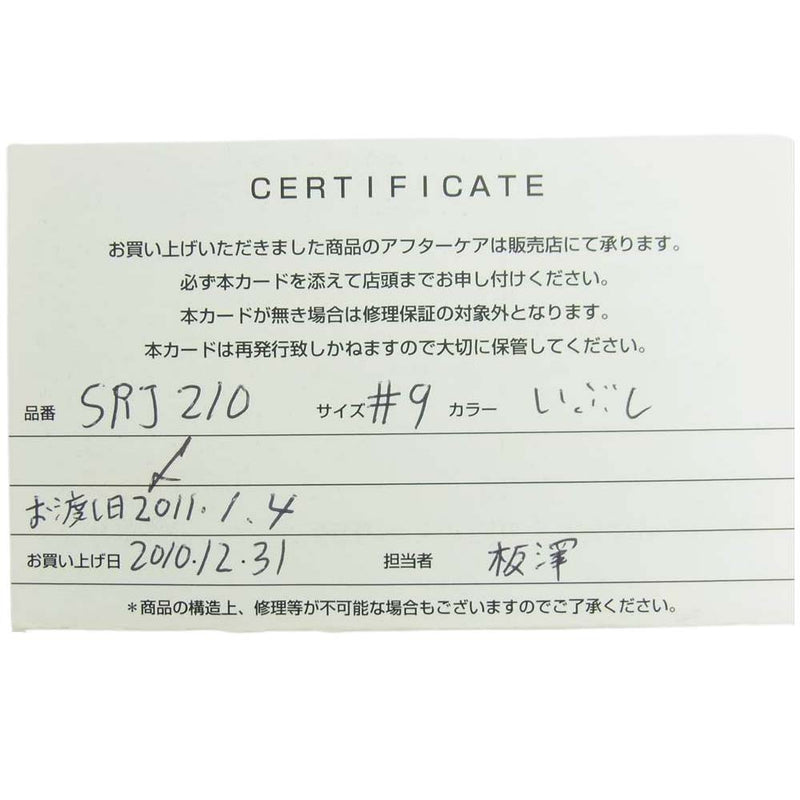 CERTIFICATE
お買い上げいただきました商品のアフターケアは販売店にて承ります。
必ず本カードを添えて店頭までお申し付けください。
本カードが無き場合は修理保証の対象外となります。
本カードは再発行致しかねますので大切に保管してください。
品番 SRJ 210 サイズ #9 カラー いぶし
お渡し日 2011.1.4
お買い上げ日 2010.12.31 担当者 板澤
*商品の構造上、修理等が不可能な場合もございますのでご了承ください。